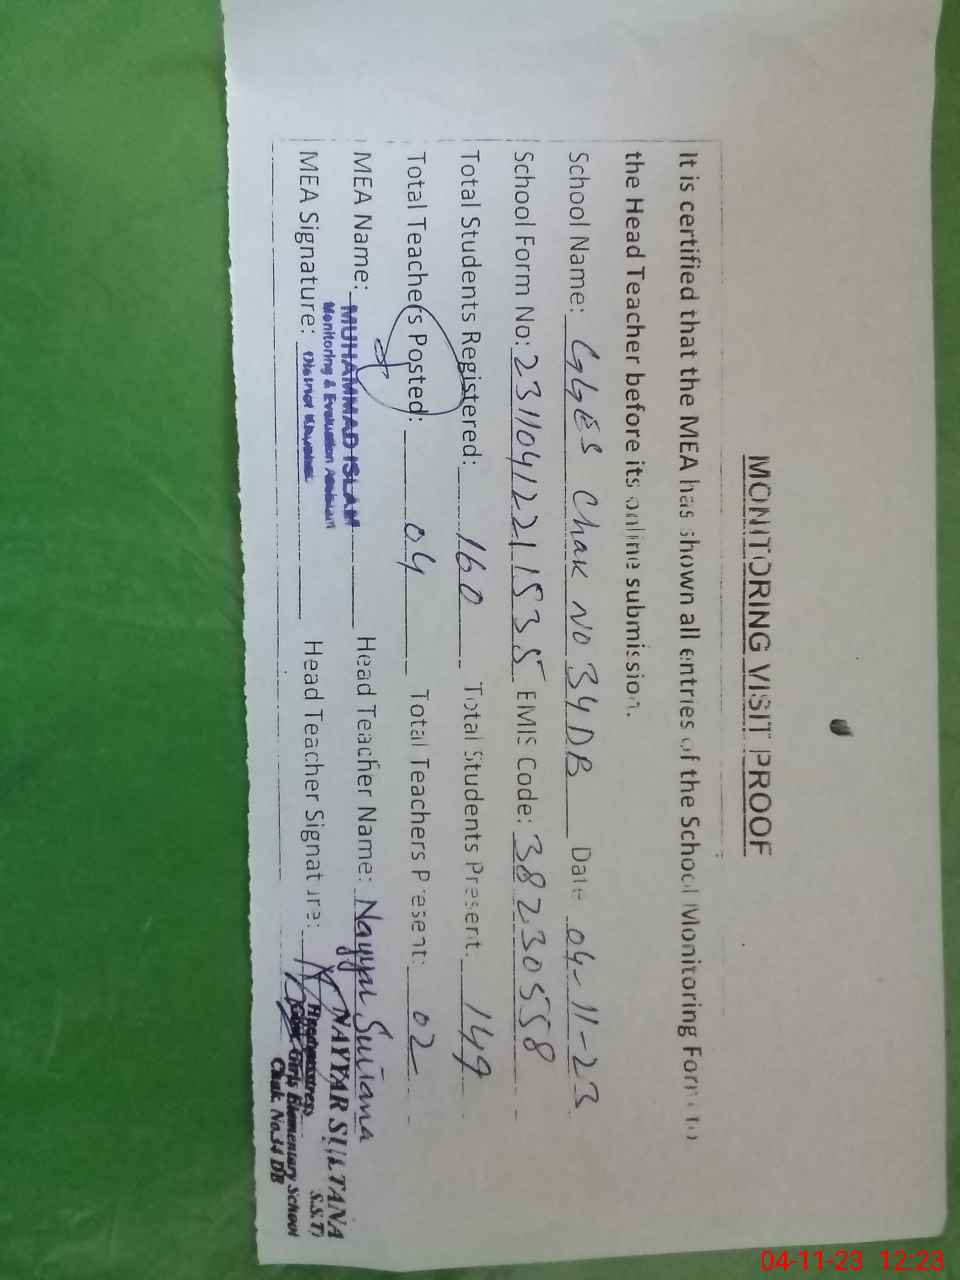 MONITORING VISIT PROOF
It is certified that the MEA has shown all entries of the School Monitoring Form to
the Head Teacher before its online submission.
School Name: GGES Chak No 34 DB Date 04-11-23
School Form No: 23110412211535 EMIS Code: 38230558
Total Students Registered: 160 Total Students Present. 149
Total Teachers Posted: 04 Total Teachers Present: 02
MEA Name: MUHAMMAD ISLAM Head Teacher Name: Nayyar Sultana
Monitoring & Evaluation Assistant
District Khushab
MEA Signature: Head Teacher Signature:
NAYYAR SULTANA
S.S.T)
Headmistress
Govt. Girls Elementary School
Chak. No.34 DB
04-11-23 12:23